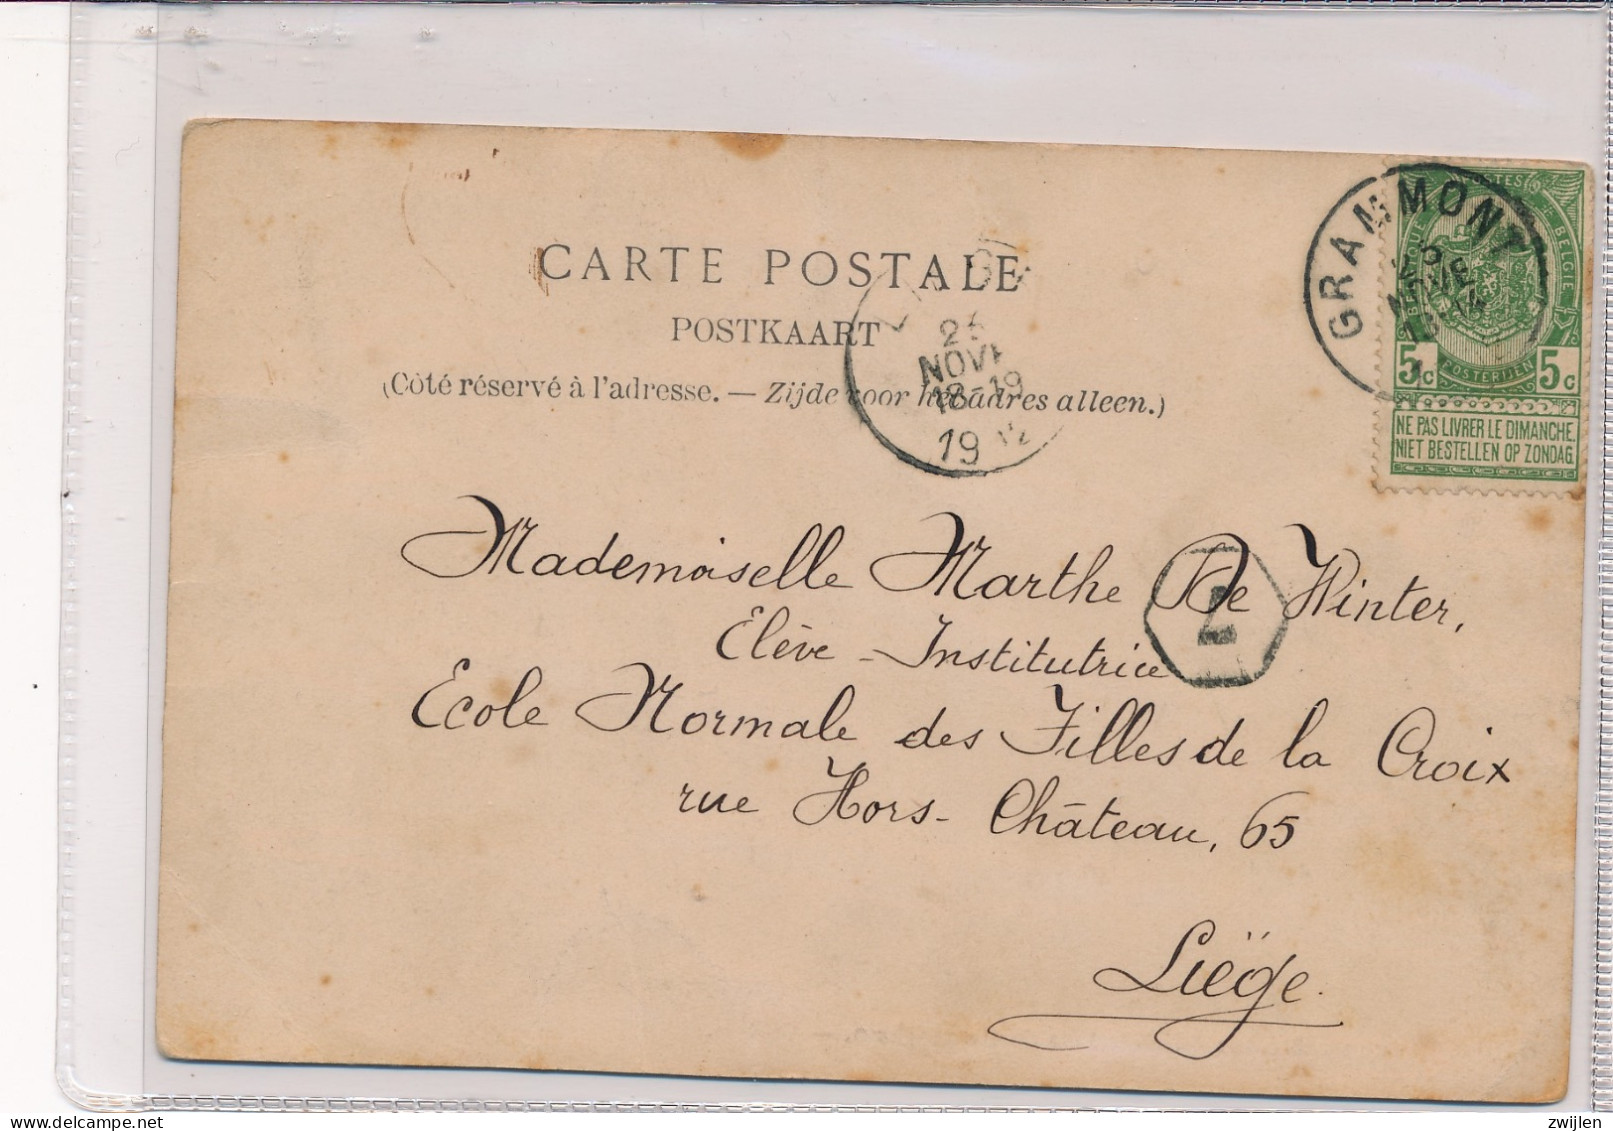 CARTE POSTALE
POSTKAART
(Côté réservé à l'adresse. — Zijde voor het adres alleen.)
GRAMMONT
NOVE
NOVE
18-19
19
5c POSTERIJEN 5c
NE PAS LIVRER LE DIMANCHE.
NIET BESTELLEN OP ZONDAG.
Mademoiselle Marthe De Winter,
7
Elève - Institutrice
Ecole Normale des Filles de la Croix
rue Hors-Château, 65
Liège.
delcampe.net
zwijlen